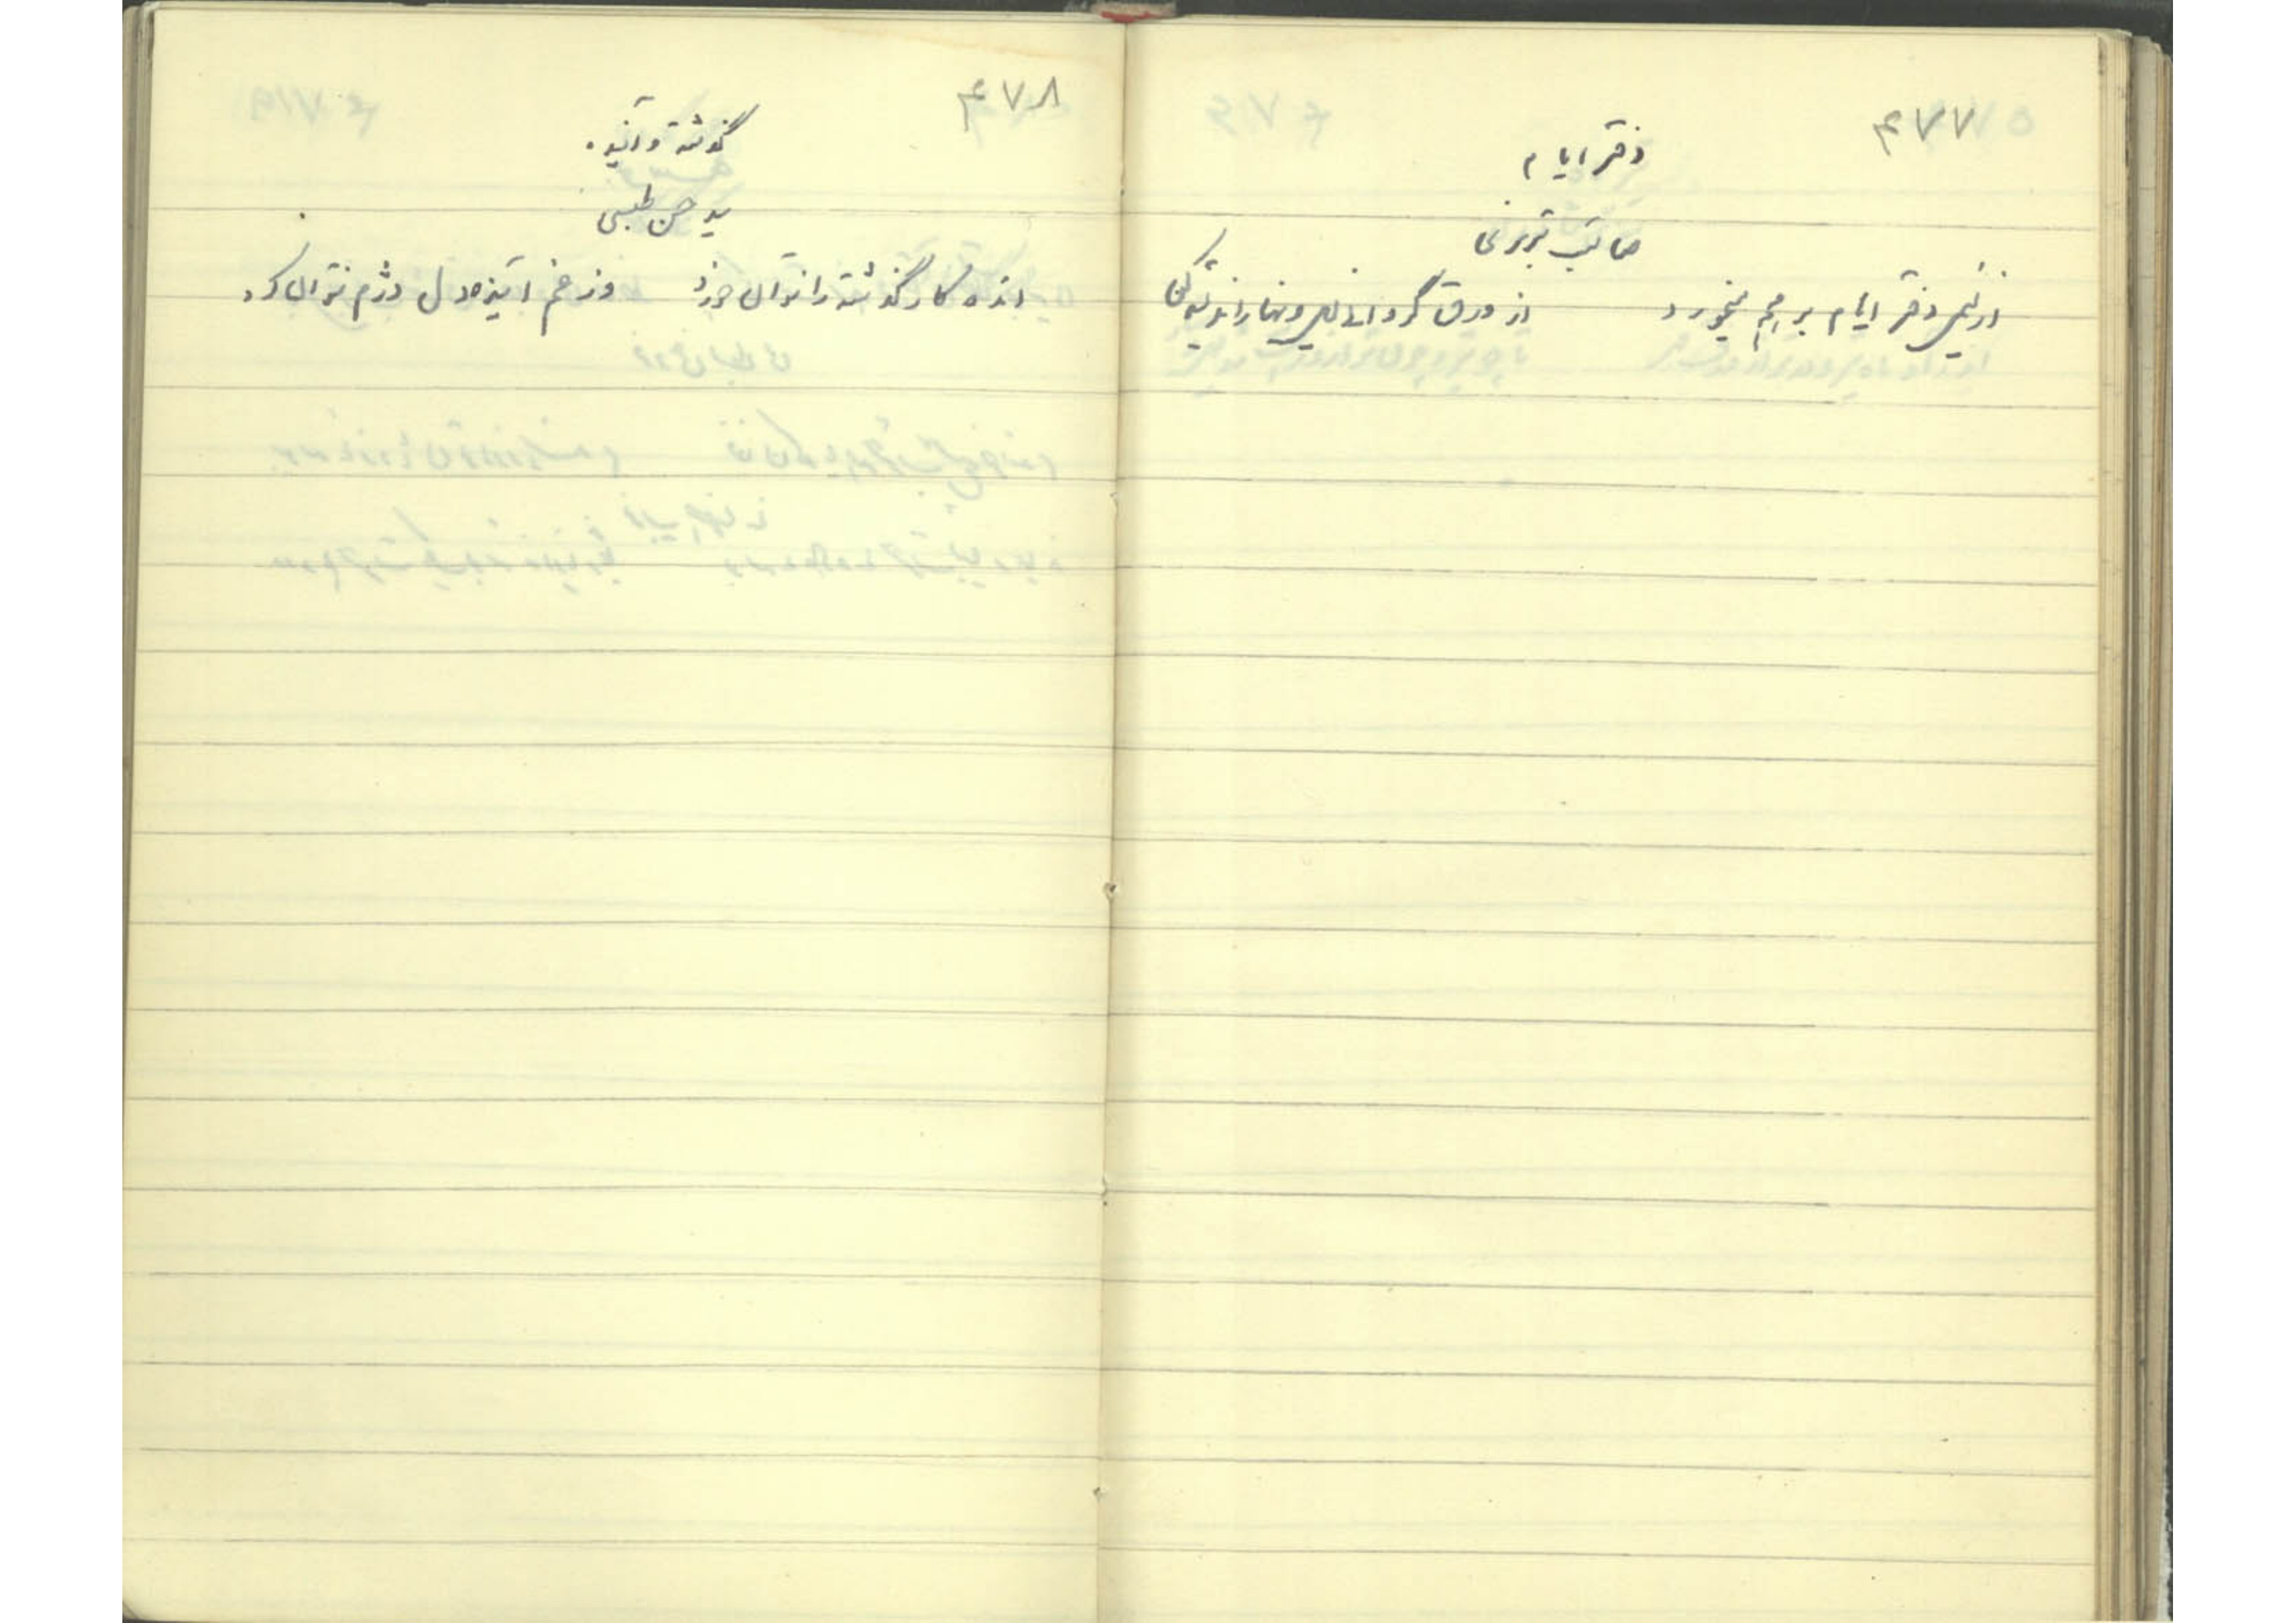 ۴۷۷
دفتر ایام
صائب تبریزی
از نسیمی دفتر ایام بر هم میخورد از ورق گردانی لیل و نهار اندیشه کن
۴۷۸
گذشته و آینده
سید حسن طبسی
انده کار گذشته را نتوان خورد وز غم آینده دل دژم نتوان کرد